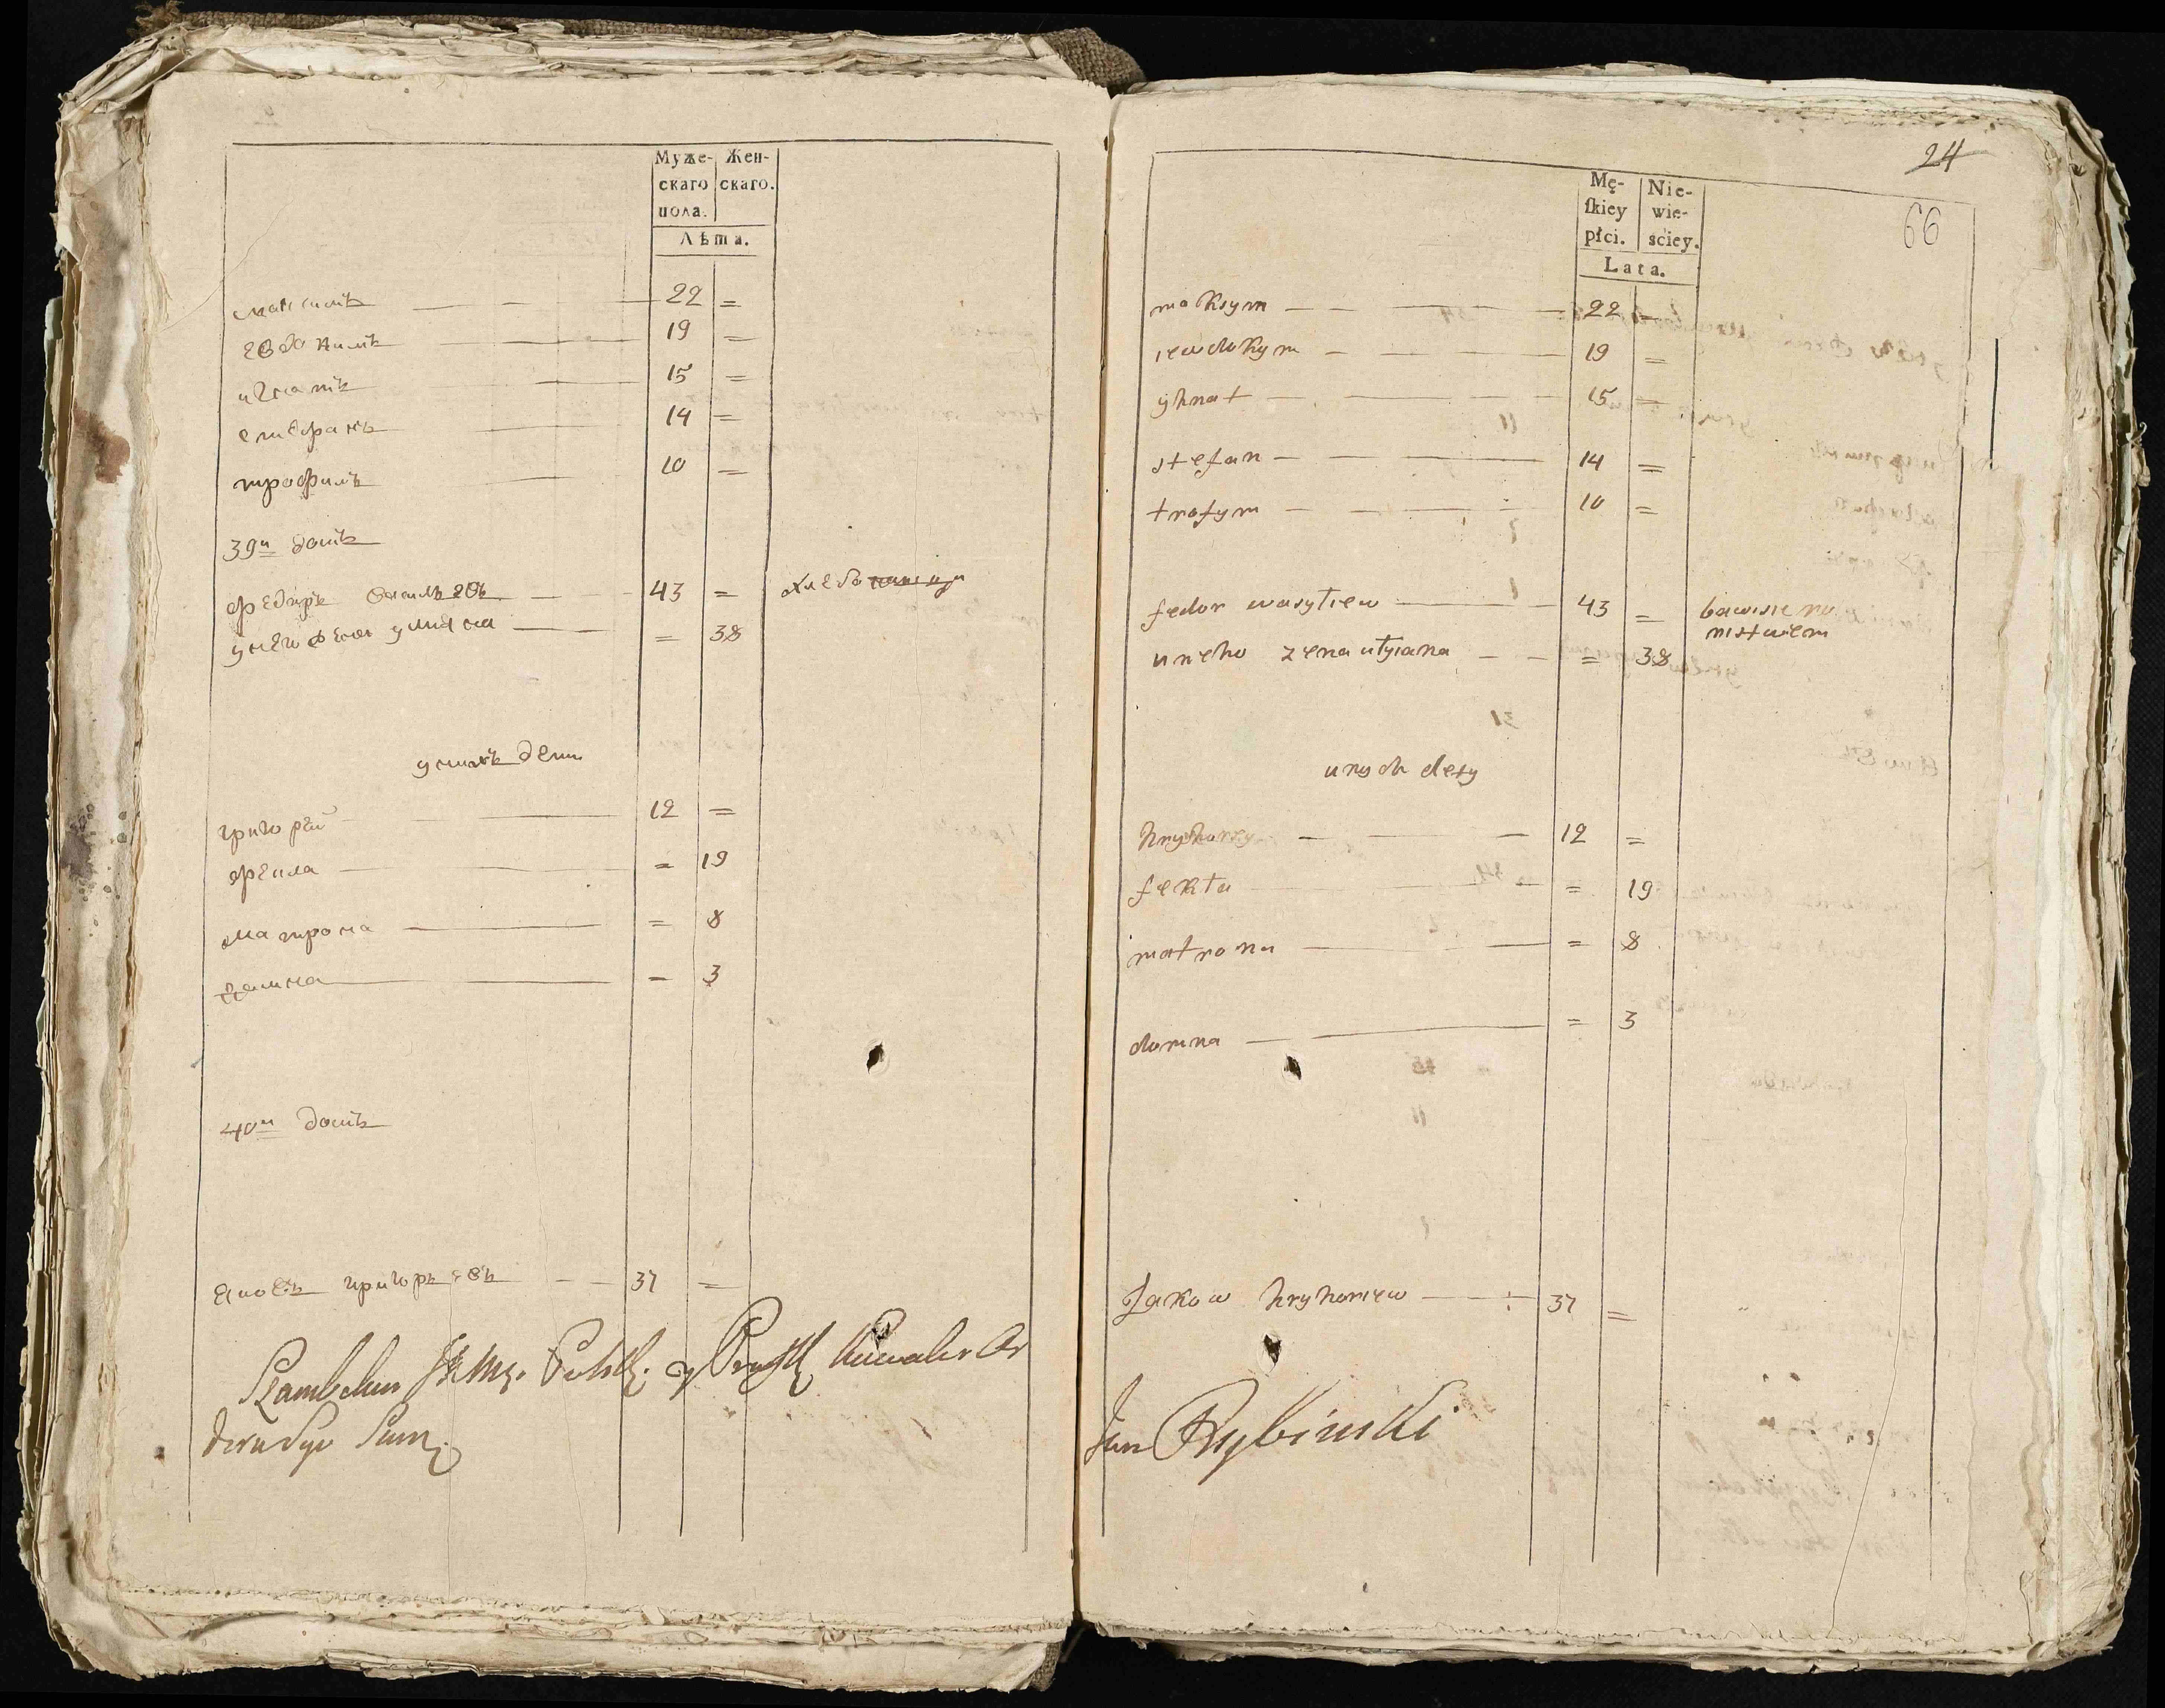 Муже- Жен-
скаго скаго.
пола.
Лѣта.
максимъ 22 =
евдокимъ 19 =
игнатъ 15 =
стефанъ 14 =
трофимъ 10 =
39й домъ
федиръ василъевъ 43 =
унего жена улияна = 38
унихъ дети
григорей 12 =
фекла = 19
матрона = 8
домна = 3
40й домъ
яковъ григорьевъ 37 =
Szambelan
24
66
Mę- Nie-
ſkiey wie-
płci. ściey.
Lata.
maksym 22 =
iewdokym 19 =
yhnat 15 =
stefan 14 =
trofym 10 =
fedor wasyliew 43 =
uneho zena ulyiana = 38
unych dety
hryhorey 12 =
fekła = 19
matrona = 8
domna = 3
Jakow hryhoriew 37 =
Jan Rybiński